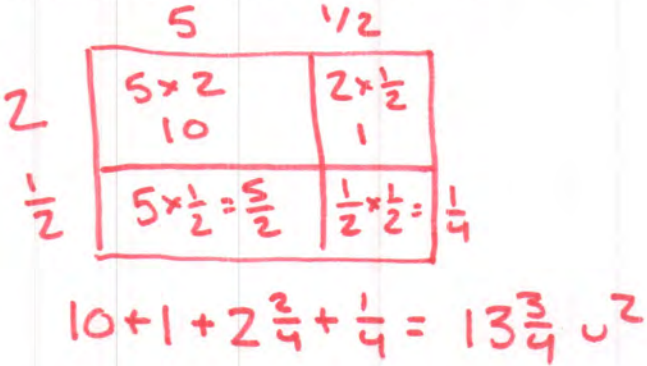 5 1/2
2 5×2 2×1/2
10 1
1/2 5×1/2=5/2 1/2×1/2= 1/4
10+1+2 2/4+1/4= 13 3/4 u²